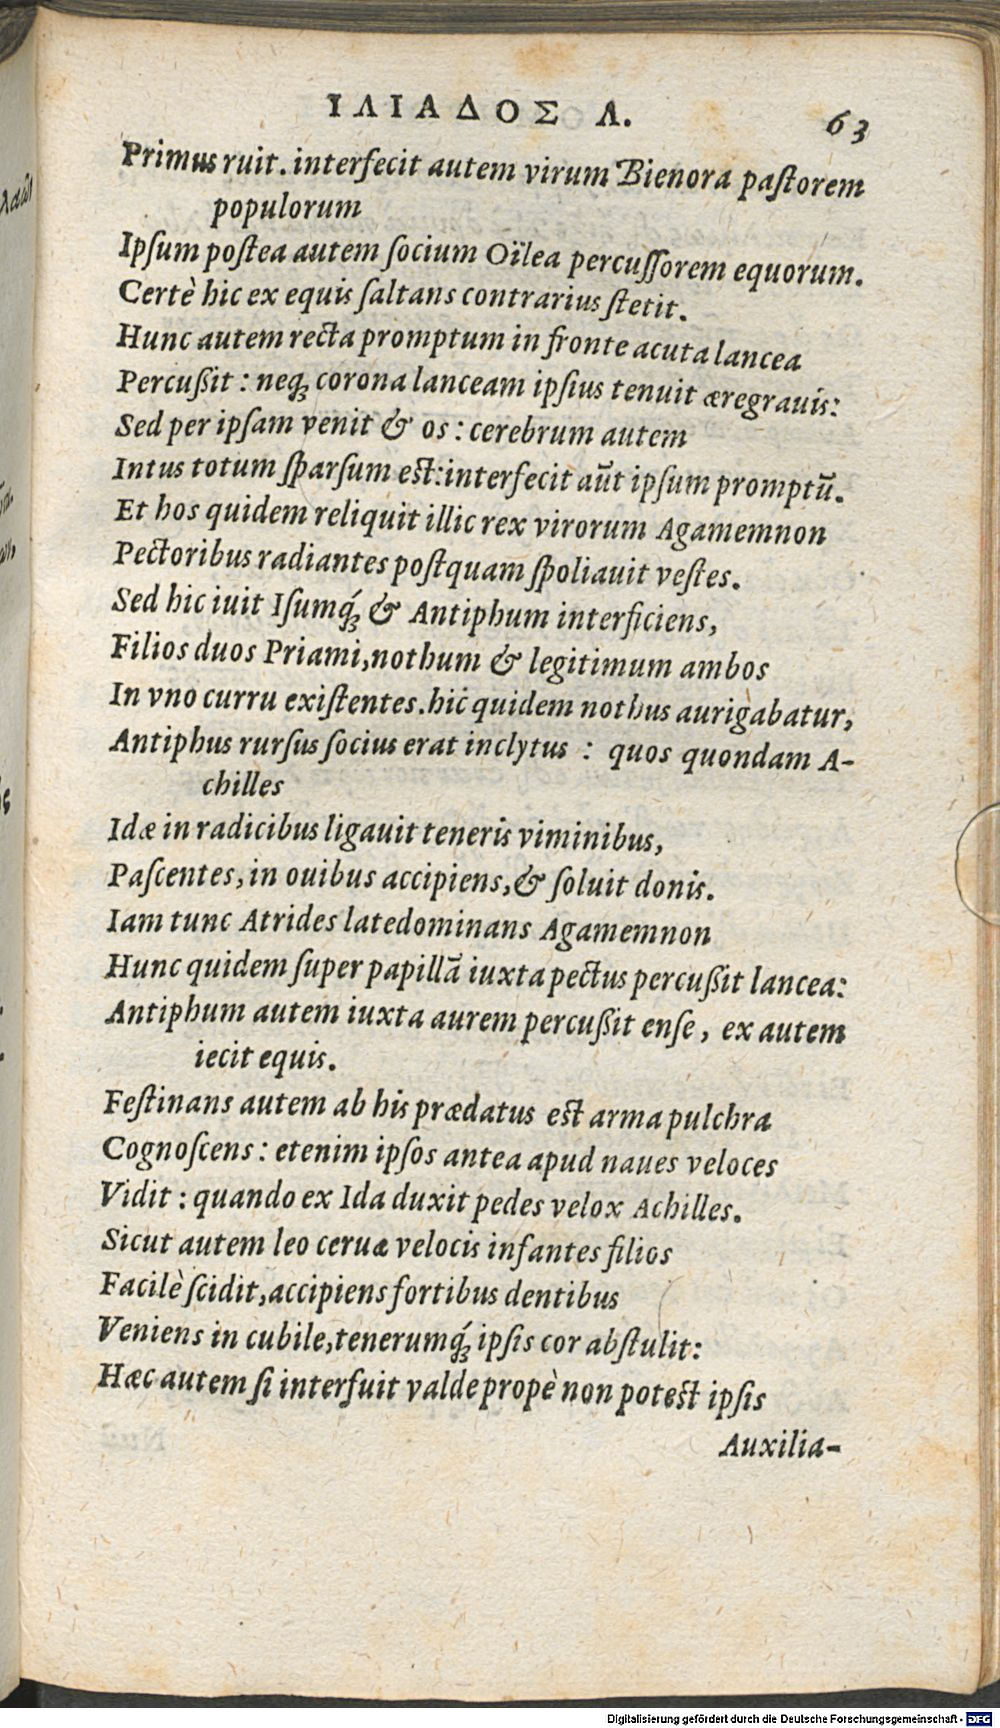 ΙΛΙΑΔΟΣ Λ.
63
Primus ruit. interfecit autem virum Bienora paſtorem
populorum
Ipſum poſtea autem ſocium Oïlea percuſſorem equorum.
Certè hic ex equis ſaltans contrarius ſtetit.
Hunc autem recta promptum in fronte acuta lancea
Percußit: neq; corona lanceam ipſius tenuit æregrauis:
Sed per ipſam venit & os: cerebrum autem
Intus totum ſparſum est: interfecit aūt ipſum promptū.
Et hos quidem reliquit illic rex virorum Agamemnon
Pectoribus radiantes poſtquam ſpoliauit veſtes.
Sed hic iuit Iſumq́; & Antiphum interficiens,
Filios duos Priami, nothum & legitimum ambos
In vno curru exiſtentes. hic quidem nothus aurigabatur,
Antiphus rurſus ſocius erat inclytus: quos quondam A-
chilles
Idæ in radicibus ligauit teneris viminibus,
Paſcentes, in ouibus accipiens, & ſoluit donis.
Iam tunc Atrides latedominans Agamemnon
Hunc quidem ſuper papillā iuxta pectus percußit lancea:
Antiphum autem iuxta aurem percußit enſe, ex autem
iecit equis.
Feſtinans autem ab his prædatus est arma pulchra
Cognoſcens: etenim ipſos antea apud naues veloces
Vidit: quando ex Ida duxit pedes velox Achilles.
Sicut autem leo ceruæ velocis infantes filios
Facilè ſcidit, accipiens fortibus dentibus
Veniens in cubile, tenerumq́; ipſis cor abſtulit:
Hæc autem ſi interfuit valde propè non potest ipſis
Auxilia-
Digitalisierung gefördert durch die Deutsche Forschungsgemeinschaft - DFG